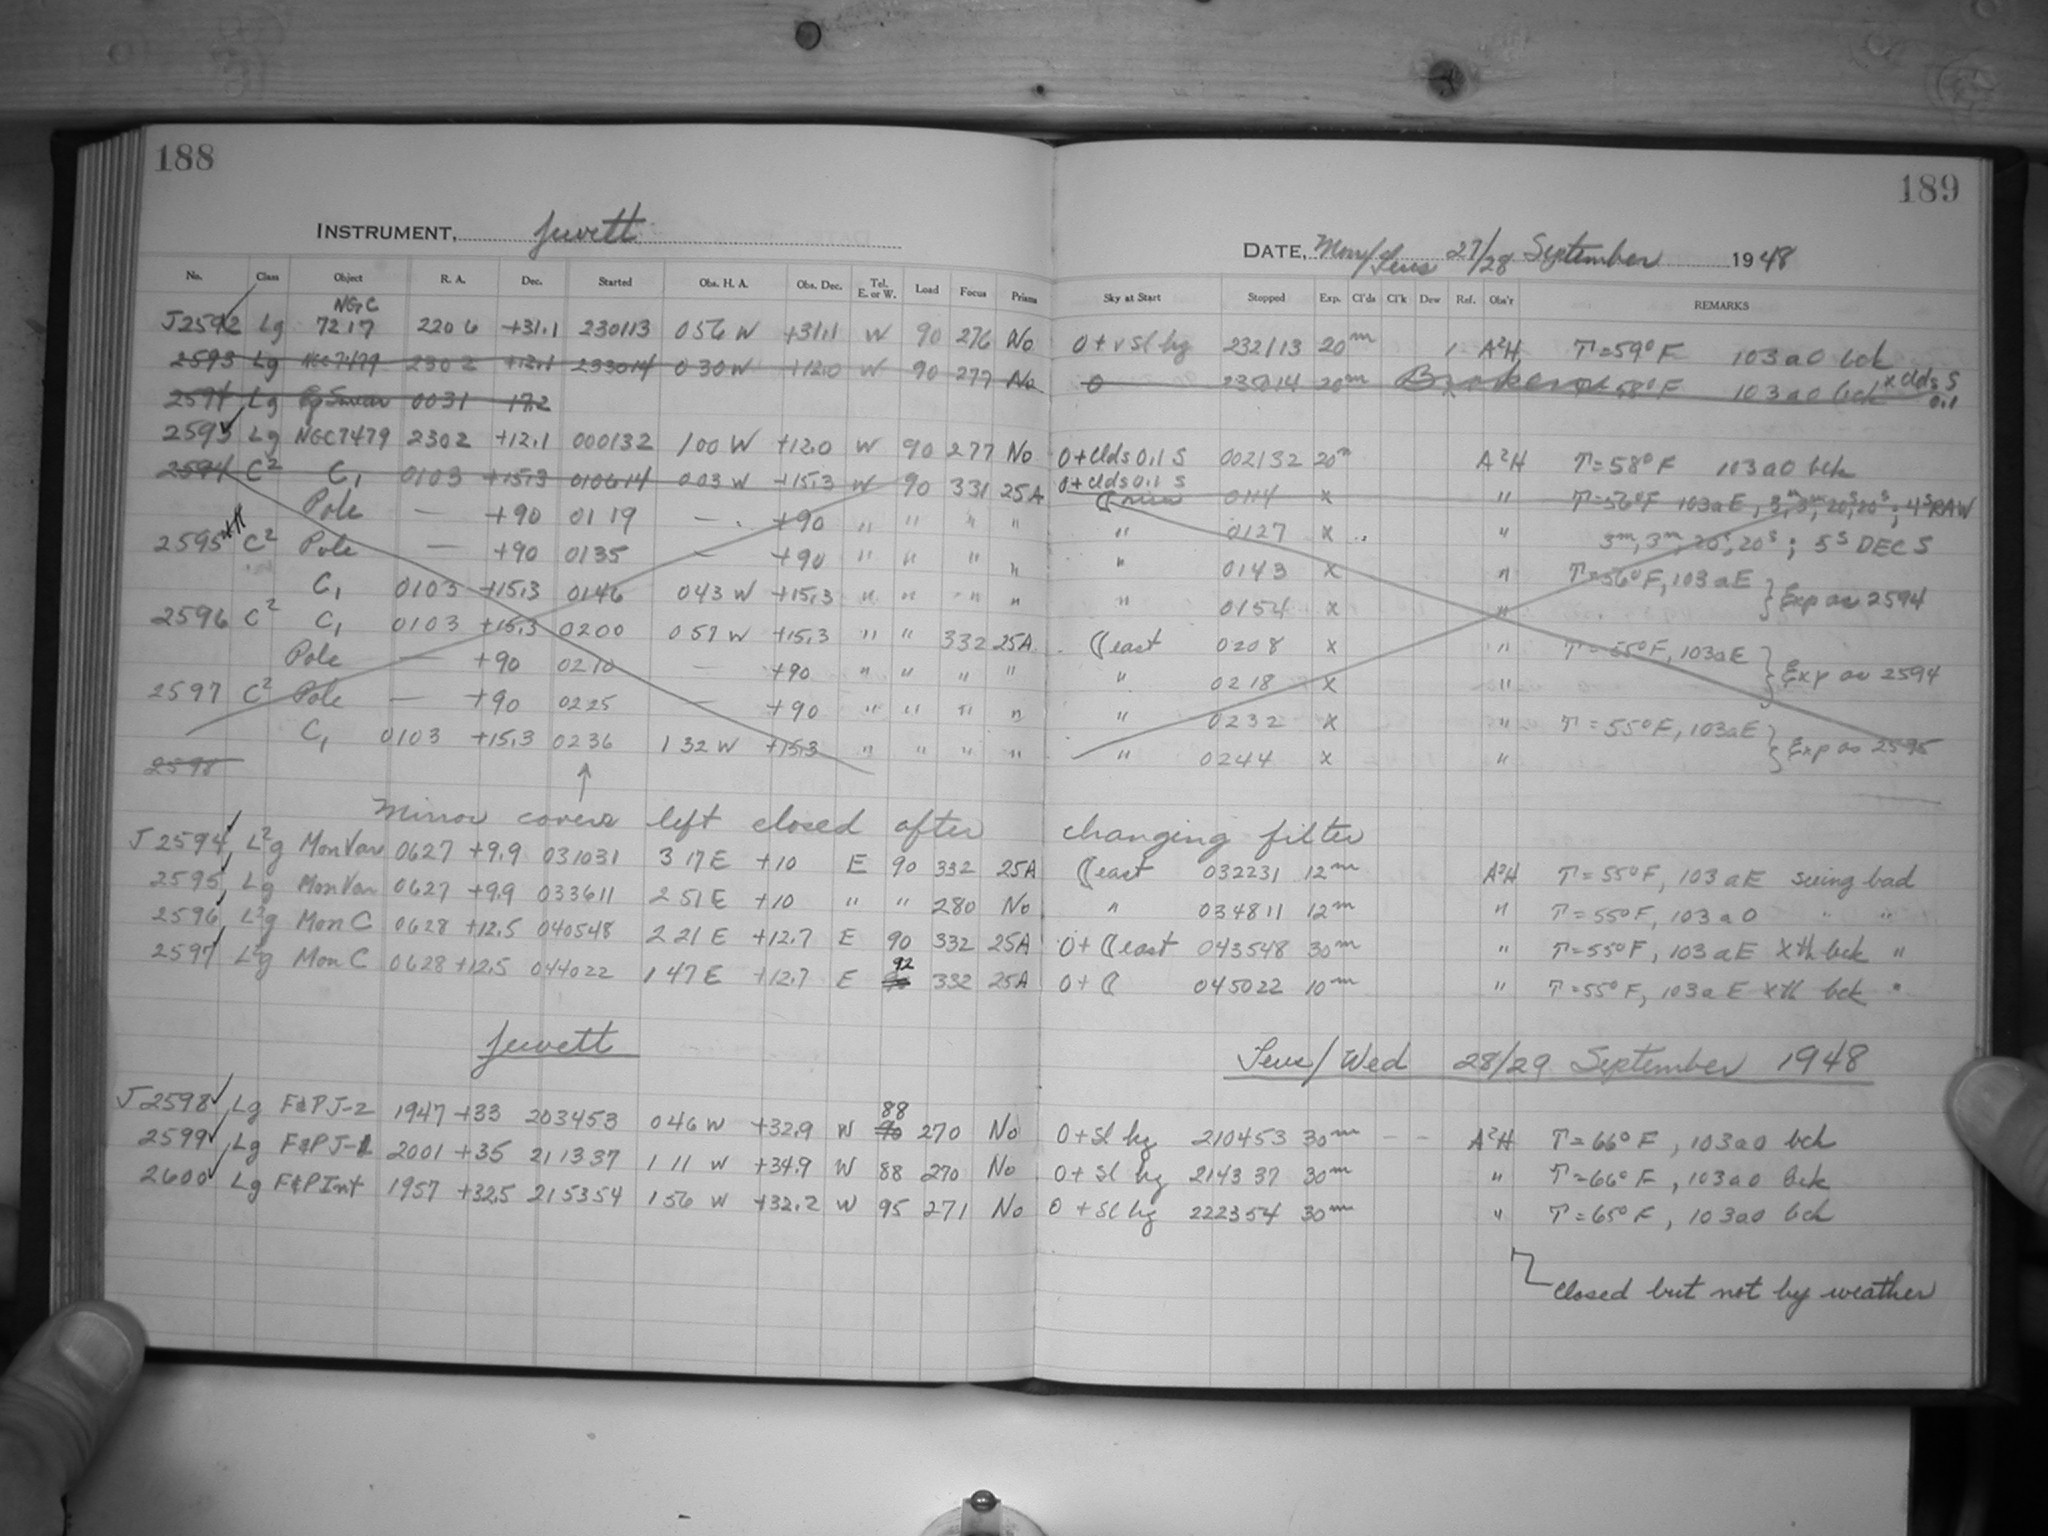 188
189
INSTRUMENT, Jewett
DATE, Mon/Tues 27/28 September 1948
No. Class Object R. A. Dec. Started Obs. H. A. Obs. Dec. Tel. E. or W. Load Focus Prisms Sky at Start Stopped Exp. Cl'ds Cl'k Dew Ref. Obs'r REMARKS
NGC
J2592 Lg 7217 2206 +31.1 230113 056 W +31.1 W 90 276 No 0+ v sl hg 232113 20m A2H T=59°F 103a0 bck
2593 Lg NGC7479 2302 +12.1 233014 030W +12.0 W 90 277 No 0 235014 20m Broken 58°F 103a0 bck x clds S 0.1
2594 Lg 0031 17.2
2593 Lg NGC7479 2302 +12.1 000132 100 W +12.0 W 90 277 No 0+Clds 0.1 S 002132 20m A2H T=58°F 103a0 bck
2594 C2 C1 0103 +15.3 010614 003 W +15.3 W 90 331 25A 0+clds 0.1 S 0114 x " T=56°F 103aE, 3m, 3m, 20s, 20s; 4s RAW
Pole — +90 0119 — +90 " " " " " 0127 x " 3m, 3m, 20s, 20s; 5s DEC S
2595 C2 Pole — +90 0135 — +90 " " " " " 0143 x " T=56°F, 103aE } Exp as 2594
C1 0103 +15.3 0146 043 W +15.3 " " " " " 0154 x "
2596 C2 C1 0103 +15.3 0200 057 W +15.3 " " 332 25A (east 0208 x " T=55°F, 103aE } Exp as 2594
Pole — +90 0210 — +90 " " " " " 0218 x "
2597 C2 Pole — +90 0225 +90 " " " " " 0232 x " T=55°F, 103aE } Exp as 2595
C1 0103 +15.3 0236 132 W +15.3 " " " " " 0244 x "
2598
Mirror covers left closed after changing filter
J2594 L2g MonVar 0627 +9.9 031031 317E +10 E 90 332 25A (east 032231 12m A2H T=55°F, 103aE seeing bad
2595 Lg MonVar 0627 +9.9 033611 251E +10 " " 280 No " 034811 12m " T=55°F, 103a0 " "
2596 L2g Mon C 0628 +12.5 040548 221E +12.7 E 90 332 25A 0+(east 043548 30m " T=55°F, 103aE Xth bck "
2597 L2g Mon C 0628 +12.5 044022 147E +12.7 E 92 332 25A 0+( 045022 10m " T=55°F, 103aE Xth bck "
Jewett Tues/Wed 28/29 September 1948
J2598 Lg F&PJ-2 1947 +33 203453 046 W +32.9 W 88 270 No 0+sl hg 210453 30m – – A2H T=66°F, 103a0 bck
2599 Lg F&PJ-1 2001 +35 211337 111 W +34.9 W 88 270 No 0+sl hg 214337 30m " T=66°F, 103a0 bck
2600 Lg F&PInt 1957 +32.5 215354 156 W +32.2 W 95 271 No 0+sl hg 222354 30m " T=65°F, 103a0 bck
Closed but not by weather